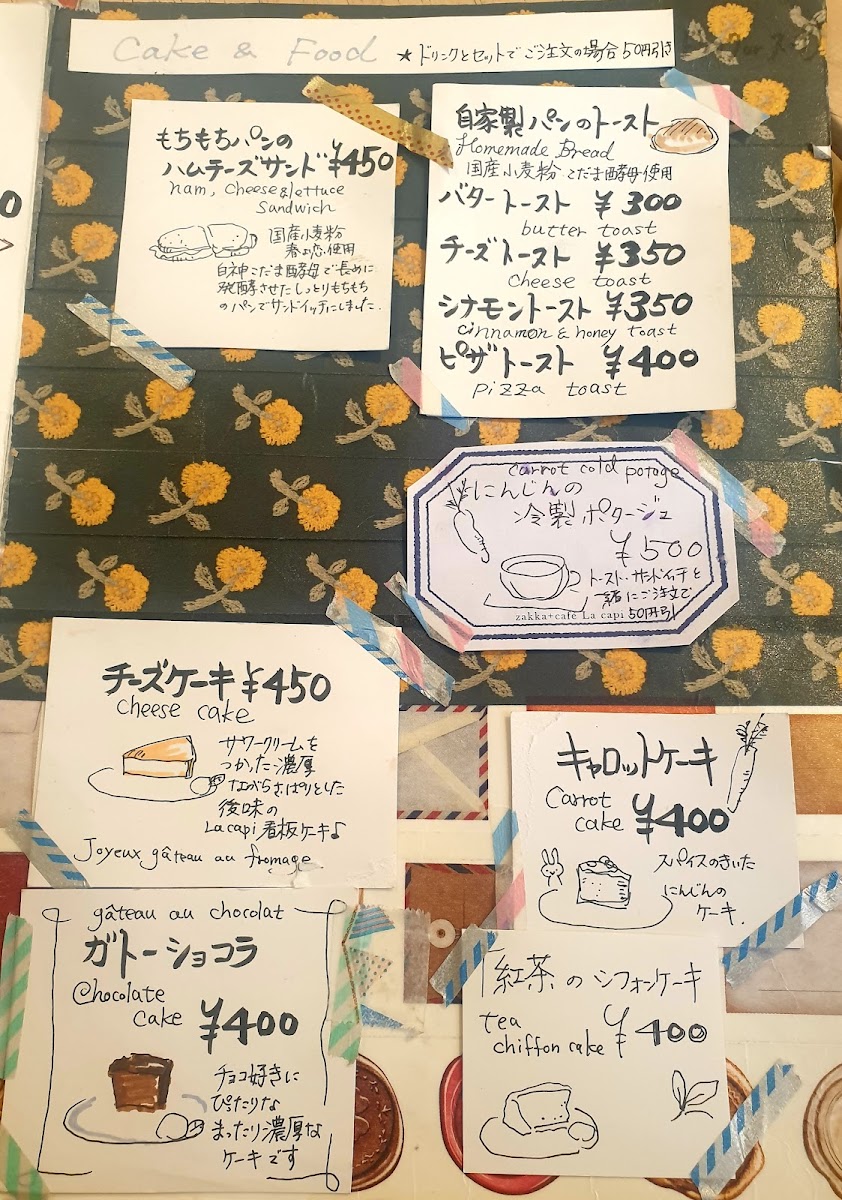 Cake & Food ★ドリンクとセットでご注文の場合50円引き
もちもちパンの
ハムチーズサンド ¥450
ham, cheese & lettuce
sandwich
国産小麦粉
春よ恋使用
白神こだま酵母で長めに
発酵させたしっとりもちもち
のパンでサンドイッチにしました。
自家製パンのトースト
Homemade Bread
国産小麦粉 こだま酵母使用
バタートースト ¥300
butter toast
チーズトースト ¥350
cheese toast
シナモントースト ¥350
cinnamon & honey toast
ピザトースト ¥400
pizza toast
carrot cold potage
にんじんの
冷製ポタージュ
¥500
トースト・サンドイッチと
一緒にご注文で
zakka+cafe La capi 50円引
チーズケーキ ¥450
cheese cake
サワークリームを
つかった濃厚
ながらさっぱりとした
後味の
La capi 看板ケーキ♪
Joyeux gâteau au fromage
キャロットケーキ
Carrot
cake ¥400
スパイスのきいた
にんじんの
ケーキ.
gâteau au chocolat
ガトーショコラ
Chocolate
cake ¥400
チョコ好きに
ぴったりな
まったり濃厚な
ケーキです
紅茶のシフォンケーキ
tea
chiffon cake ¥400